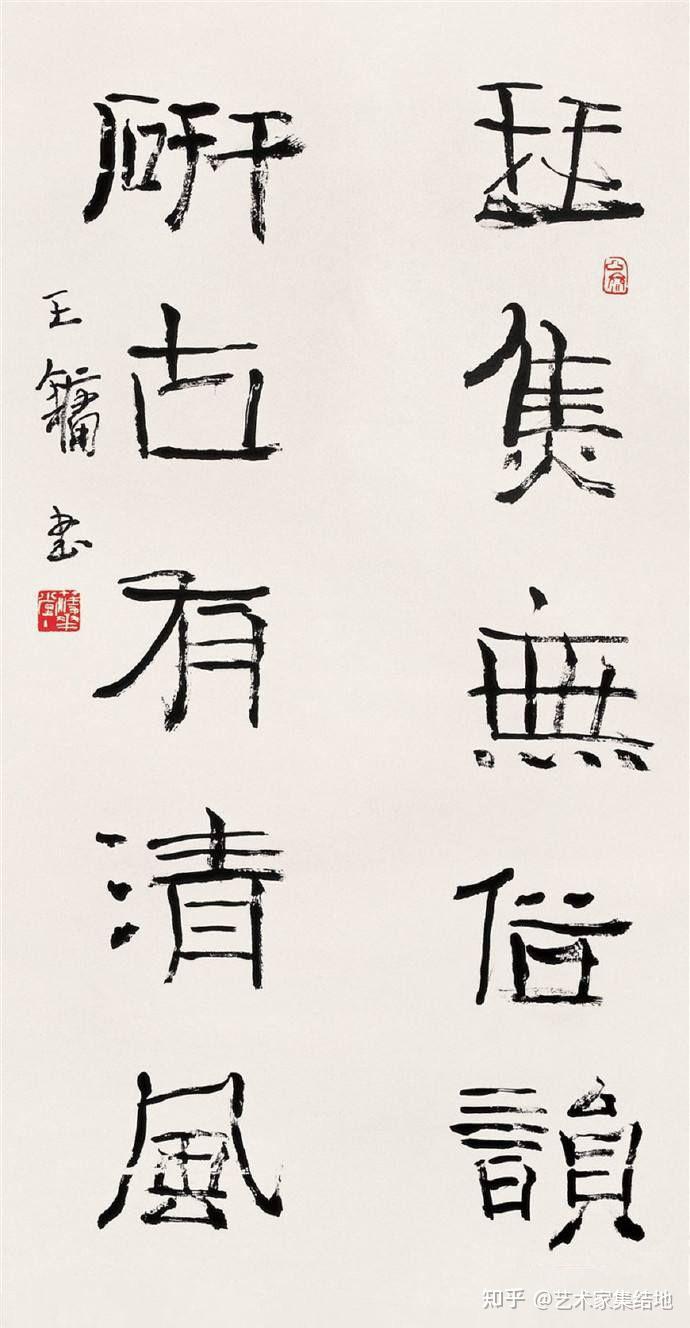 集無俗韻
研古有清風
王鏞書
知乎 @艺术家集结地